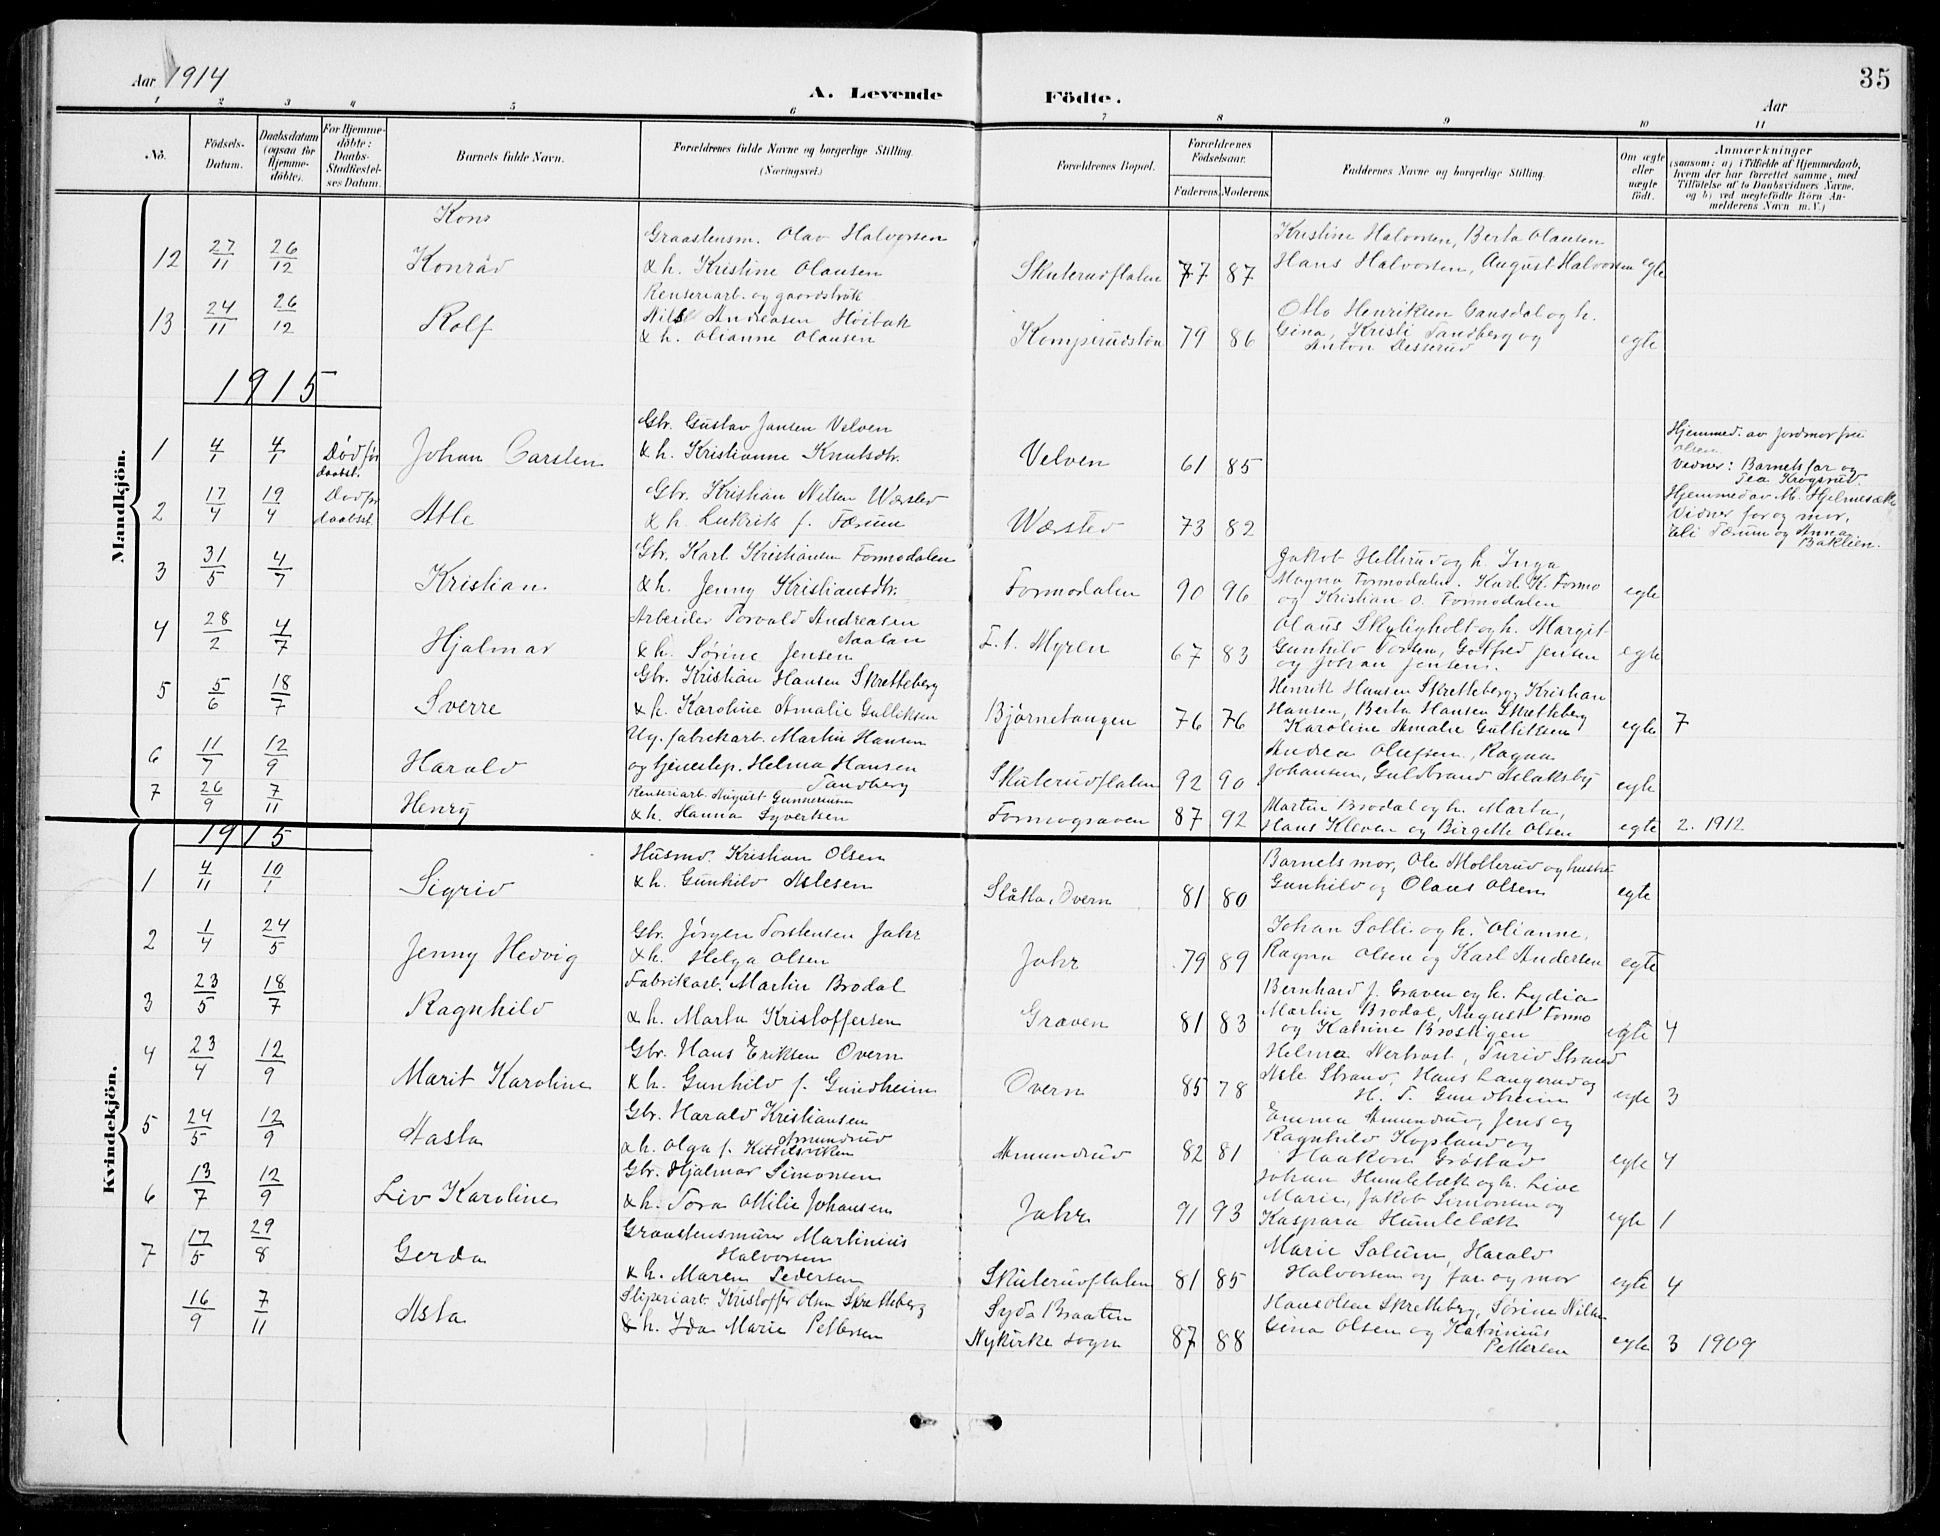 Aar 1914
A. Levende Födte.
Aar
35
1 2 3 4 5 6 7 8 9 10 11
No.
Födsels-Datum.
Daabsdatum (ogsaa for Hjemme-döbte).
For Hjemme-döbte: Daabs-Stadfæstel-ses Datum.
Barnets fulde Navn.
Forældrenes fulde Navne og borgerlige Stilling. (Næringsvei.)
Forældrenes Bopæl.
Forældrenes Födselsaar.
Faderens. Moderens.
Faddernes Navne og borgerlige Stilling.
Om ægte eller uægte födt.
Anmærkninger
(saasom: a) i Tilfælde af Hjemmedaab,
hvem der har forrettet samme, med
Tilföielse af to Daabsvidners Navne,
og b) ved uægtefödte Börn An-
melderens Navn m. V.)
Mandkjön.
Kons
12 27/11 26/12 Konrad
Graastensm. Olav Halvorsen
& h. Kristine Olausen
Skuterudflaten 77 87
Kristine Halvorsen, Berta Olausen
Hans Halvorsen, August Halvorsen egte
13 24/11 26/12 Rolf
Renseriarb. og gaardsbruk
Nils Andreasen Höibak
& h. Olianne Olausen
Komperudstøa 79 86
Otto Henriksen Cansdal og h.
Gina, Kristi Tandberg og
Anton Desserud
egte
1915
1 4/1 4/1 Död før daabst. Johan Carsten
Gbr. Gustav Jansen Velven
& h. Kristianne Knutsdtr.
Velven 61 85
Hjemmed. av jordmor fru
Olsen.
Vidner: Barnets far og
Tea Krogsrud
2 17/4 19/4 Død før daabst. Atle
Gbr. Kristian Nilsen Wærsted
& h. Lukrits f. Færum
Wærsted 73 82
Hjemmed av M. Hjelmesæth
Vidner far og mor,
Eli Færum og Anna
Baklien.
3 31/5 4/7 Kristian
Gbr. Karl Kristiansen Formodalen
& h. Jenny Kristiansdtr.
Formodalen 90 96
Jakob Hellerud og h. Inga
Magna Formodalen. Karl K. Formo
og Kristian O. Formodalen
egte
4 28/2 4/7 Hjalmar
Arbeider Torvald Andreasen
Naalan
& h. Sørine Jensen
E. 1. Myren 67 83
Olaus Skyligholt og h. Margit
Gunhild Torsen, Gotfred Jensen
og Johan Jensen.
egte
5 5/6 18/7 Sverre
Gbr. Kristian Hansen Skretteberg
& h. Karoline Amalie Gulliksen
Bjørnetangen 76 76
Henrik Hansen Skretteberg, Kristian
Hansen, Berta Hansen Skretteberg
Karoline Amalie Gulliksen
egte 7
6 11/7 12/9 Harald
Ug. fabrikarb. Martin Hansen
og tjenestep. Helma Hansen
Tandberg
Skuterudflaten 92 90
Andrea Olufsen, Ragna
Johansen, Guldbrand Aslaksby
egte
7 26/9 7/11 Henry
Renseriarb. August Gunnersmoen
& h. Hanna Syvertsen
Formograven 87 92
Martin Brodal og h. Marta,
Hans Kleven og Birgette Olsen
egte 2. 1912
Kvindekjön.
1915
1 4/11 10/1 Sigrid
Husmd. Kristian Olsen
& h. Gunhild Aslesen
Slåtta, Overn 81 80
Barnets mor, Ole Mollerud og hustru
Gunhild og Olaus Olsen
egte
2 1/4 24/5 Jenny Hedvig
Gbr. Jørgen Torstensen Jahr
& h. Helga Olsen
Jahr 79 89
Johan Solli og h. Olianne,
Ragna Olsen og Karl Andersen
egte
3 23/5 18/7 Ragnhild
Fabrikarb. Martin Brodal
& h. Marta Kristoffersen
Graven 81 83
Bernhard J. Graven og h. Lydia
Martin Brodal, August Formo
og Katrine Brostigen
egte 4
4 23/4 12/9 Marit Karoline
Gbr. Hans Eriksen Overn
& h. Gunhild f. Gundheim
Overn 85 78
Helma Nertrost, Turid Strand
Asle Strand, Hans Langerud og
H. T. Gundheim
egte 3
5 24/5 12/9 Aasta
Gbr. Harald Kristiansen
Amundrud
& h. Olga f. Kittelsviken
Amundrud 82 81
Emma Amundrud, Jens og
Ragnhild Kopland og
Haakon Grøstad
egte 4
6 13/7 12/9 Liv Karoline
Gbr. Hjalmar Simonsen
& h. Tora Ottilie Johansen
Jahr 91 93
Johan Humlebæk og h. Live
Marie, Jakob Simonsen og
Kaspara Humlebæk
egte 1
7 17/5 29/8 Gerda
Graastensmurer Martinius
Halvorsen
& h. Maren Pedersen
Skuterudflaten 81 85
Marie Solum, Harald
Halvorsen og far og mor
egte 4
16/9 7/11 Asta
Sliperiarb. Kristoffer Olsen Skretteberg
& h. Ida Marie Pettersen
Syda Braaten
Nykirke sogn 87 88
Hans Olsen Skretteberg, Sørine Nilsen
Gina Olsen og Katrinius
Pettersen
egte 3 1909